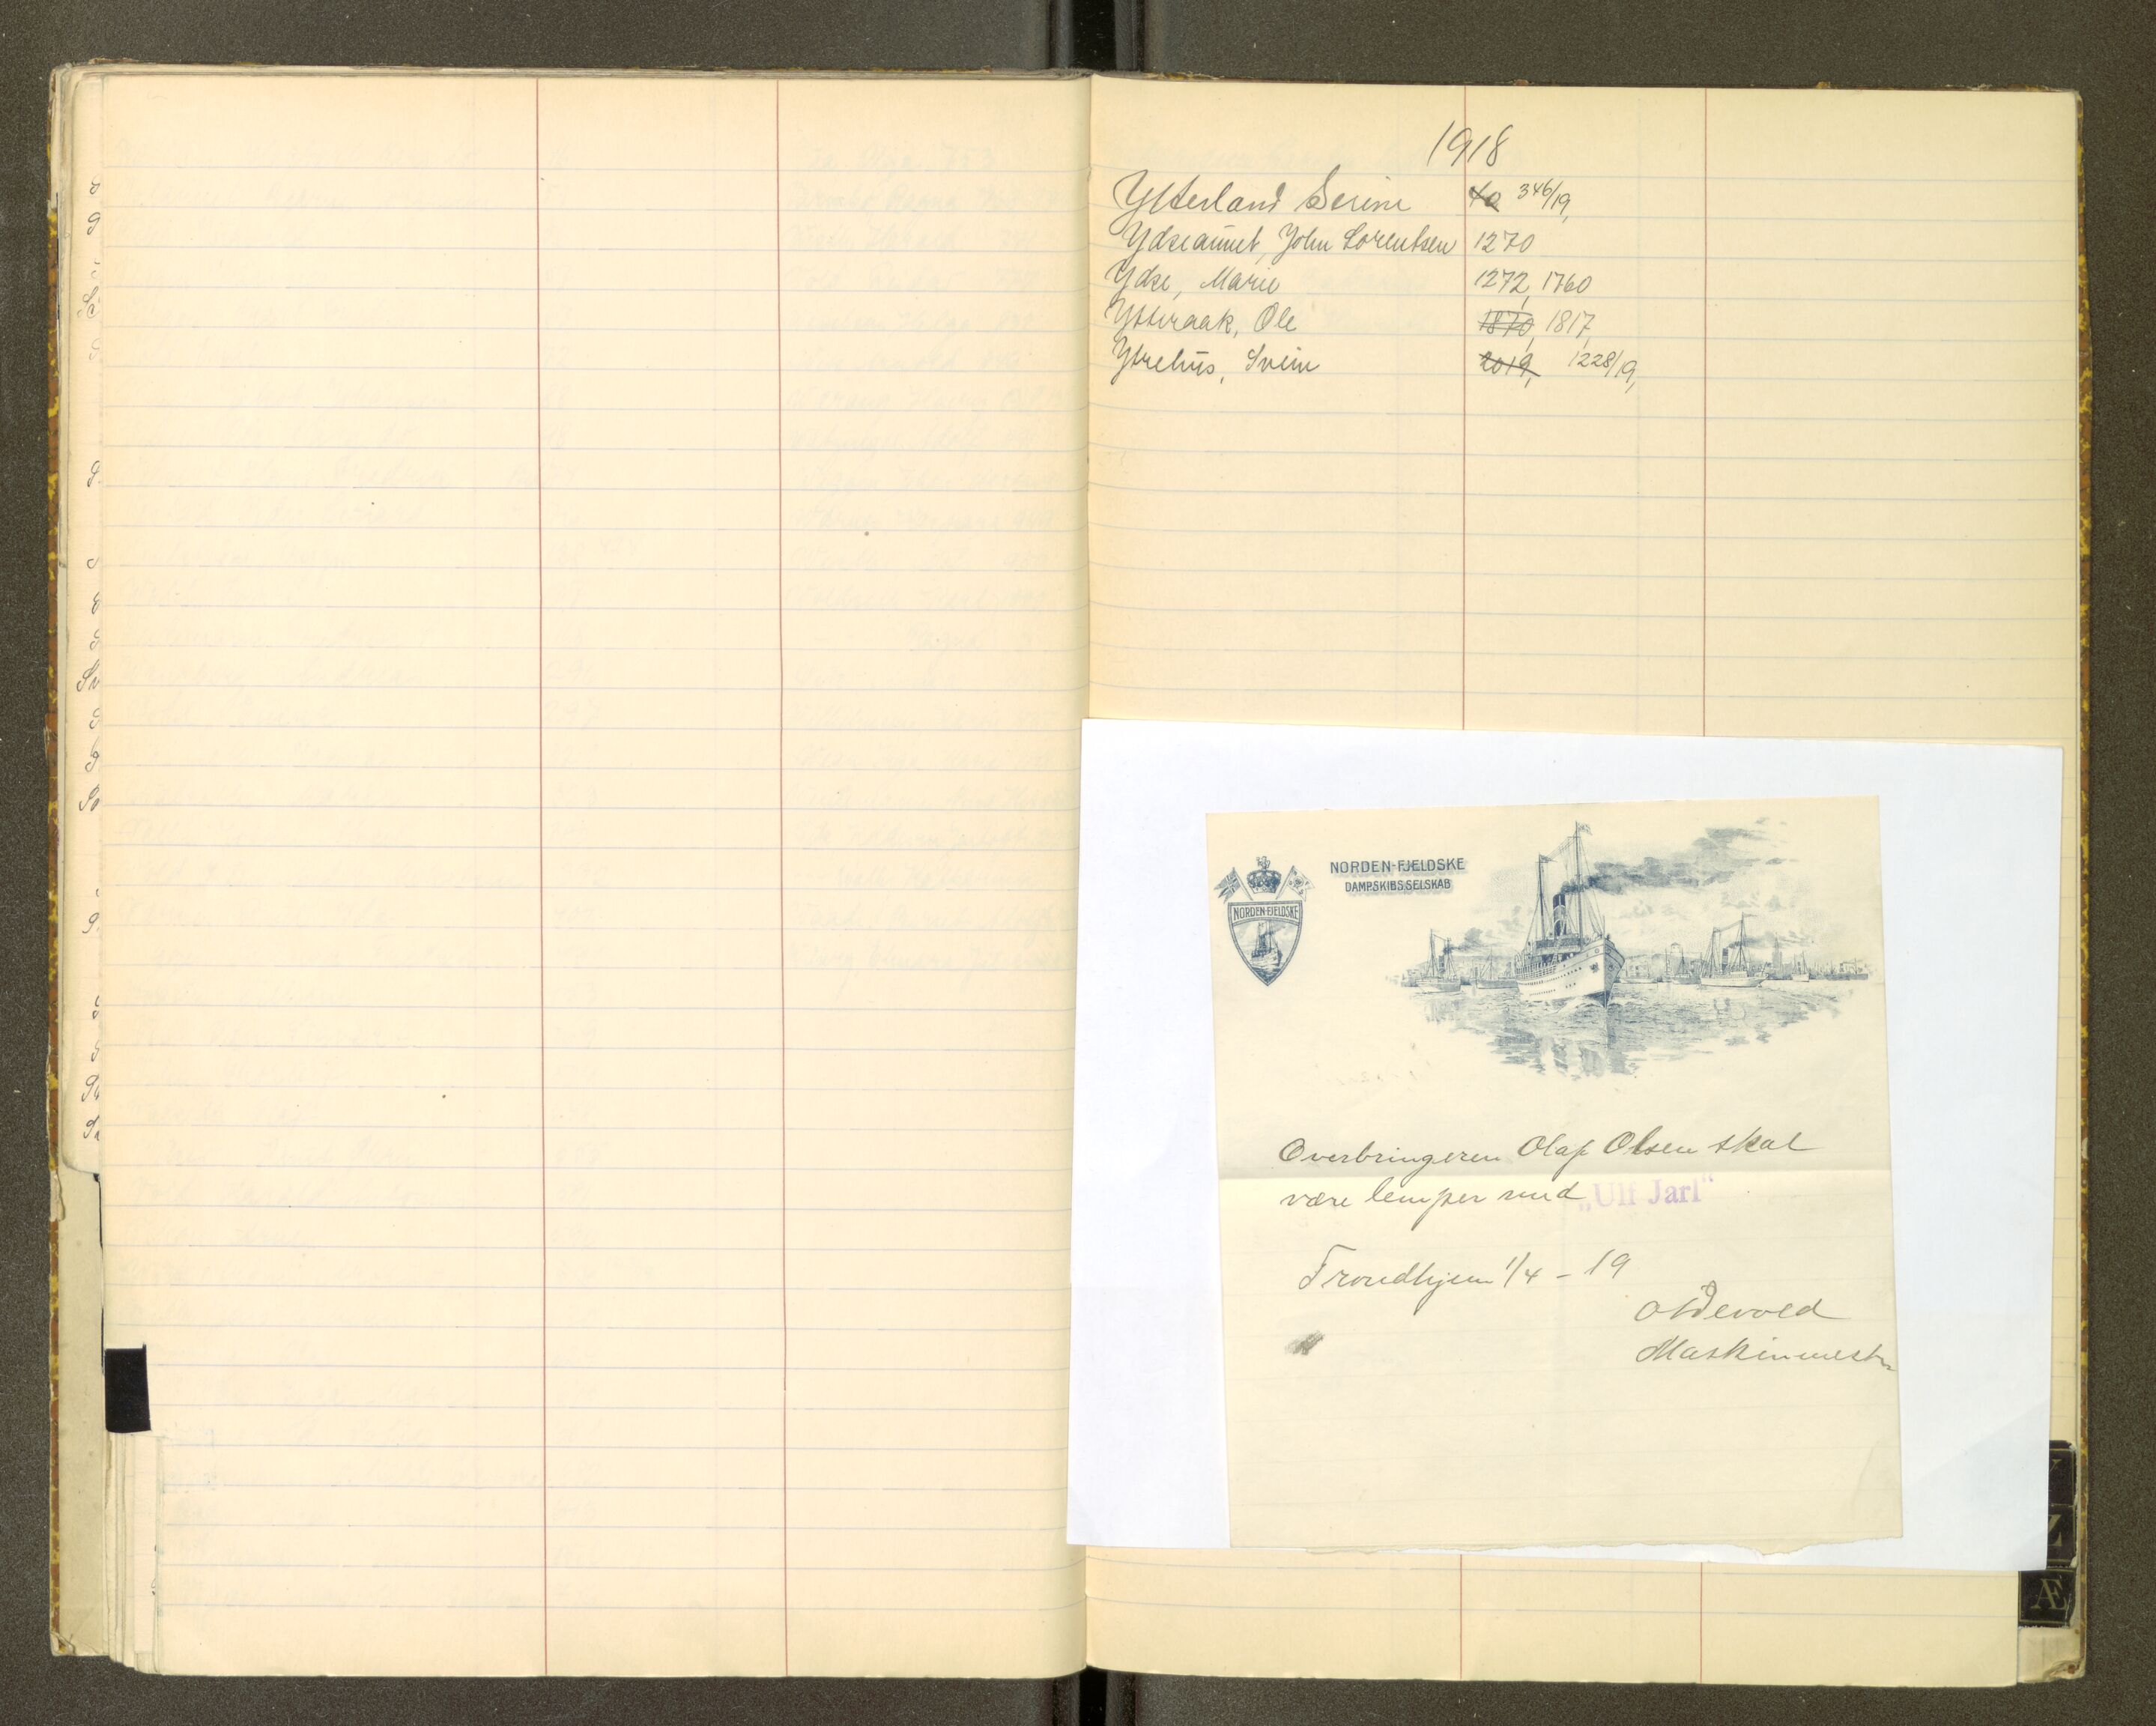 1918
Ytterland Serine 40 346/19,
Ydseaunet, John Lorentsen 1270
Ydse, Marie 1272, 1760
Ytteraak, Ole 1870, 1817,
Ytrehus, Svein 2019, 1228/19,
NORDEN-FJELDSKE
DAMPSKIBSSELSKAB
NORDEN-FJELDSKE
Overbringeren Olaf Olsen skal
være lemper med „Ulf Jarl“
Trondhjem 1/4 - 19
Maskinmester
Z
Æ